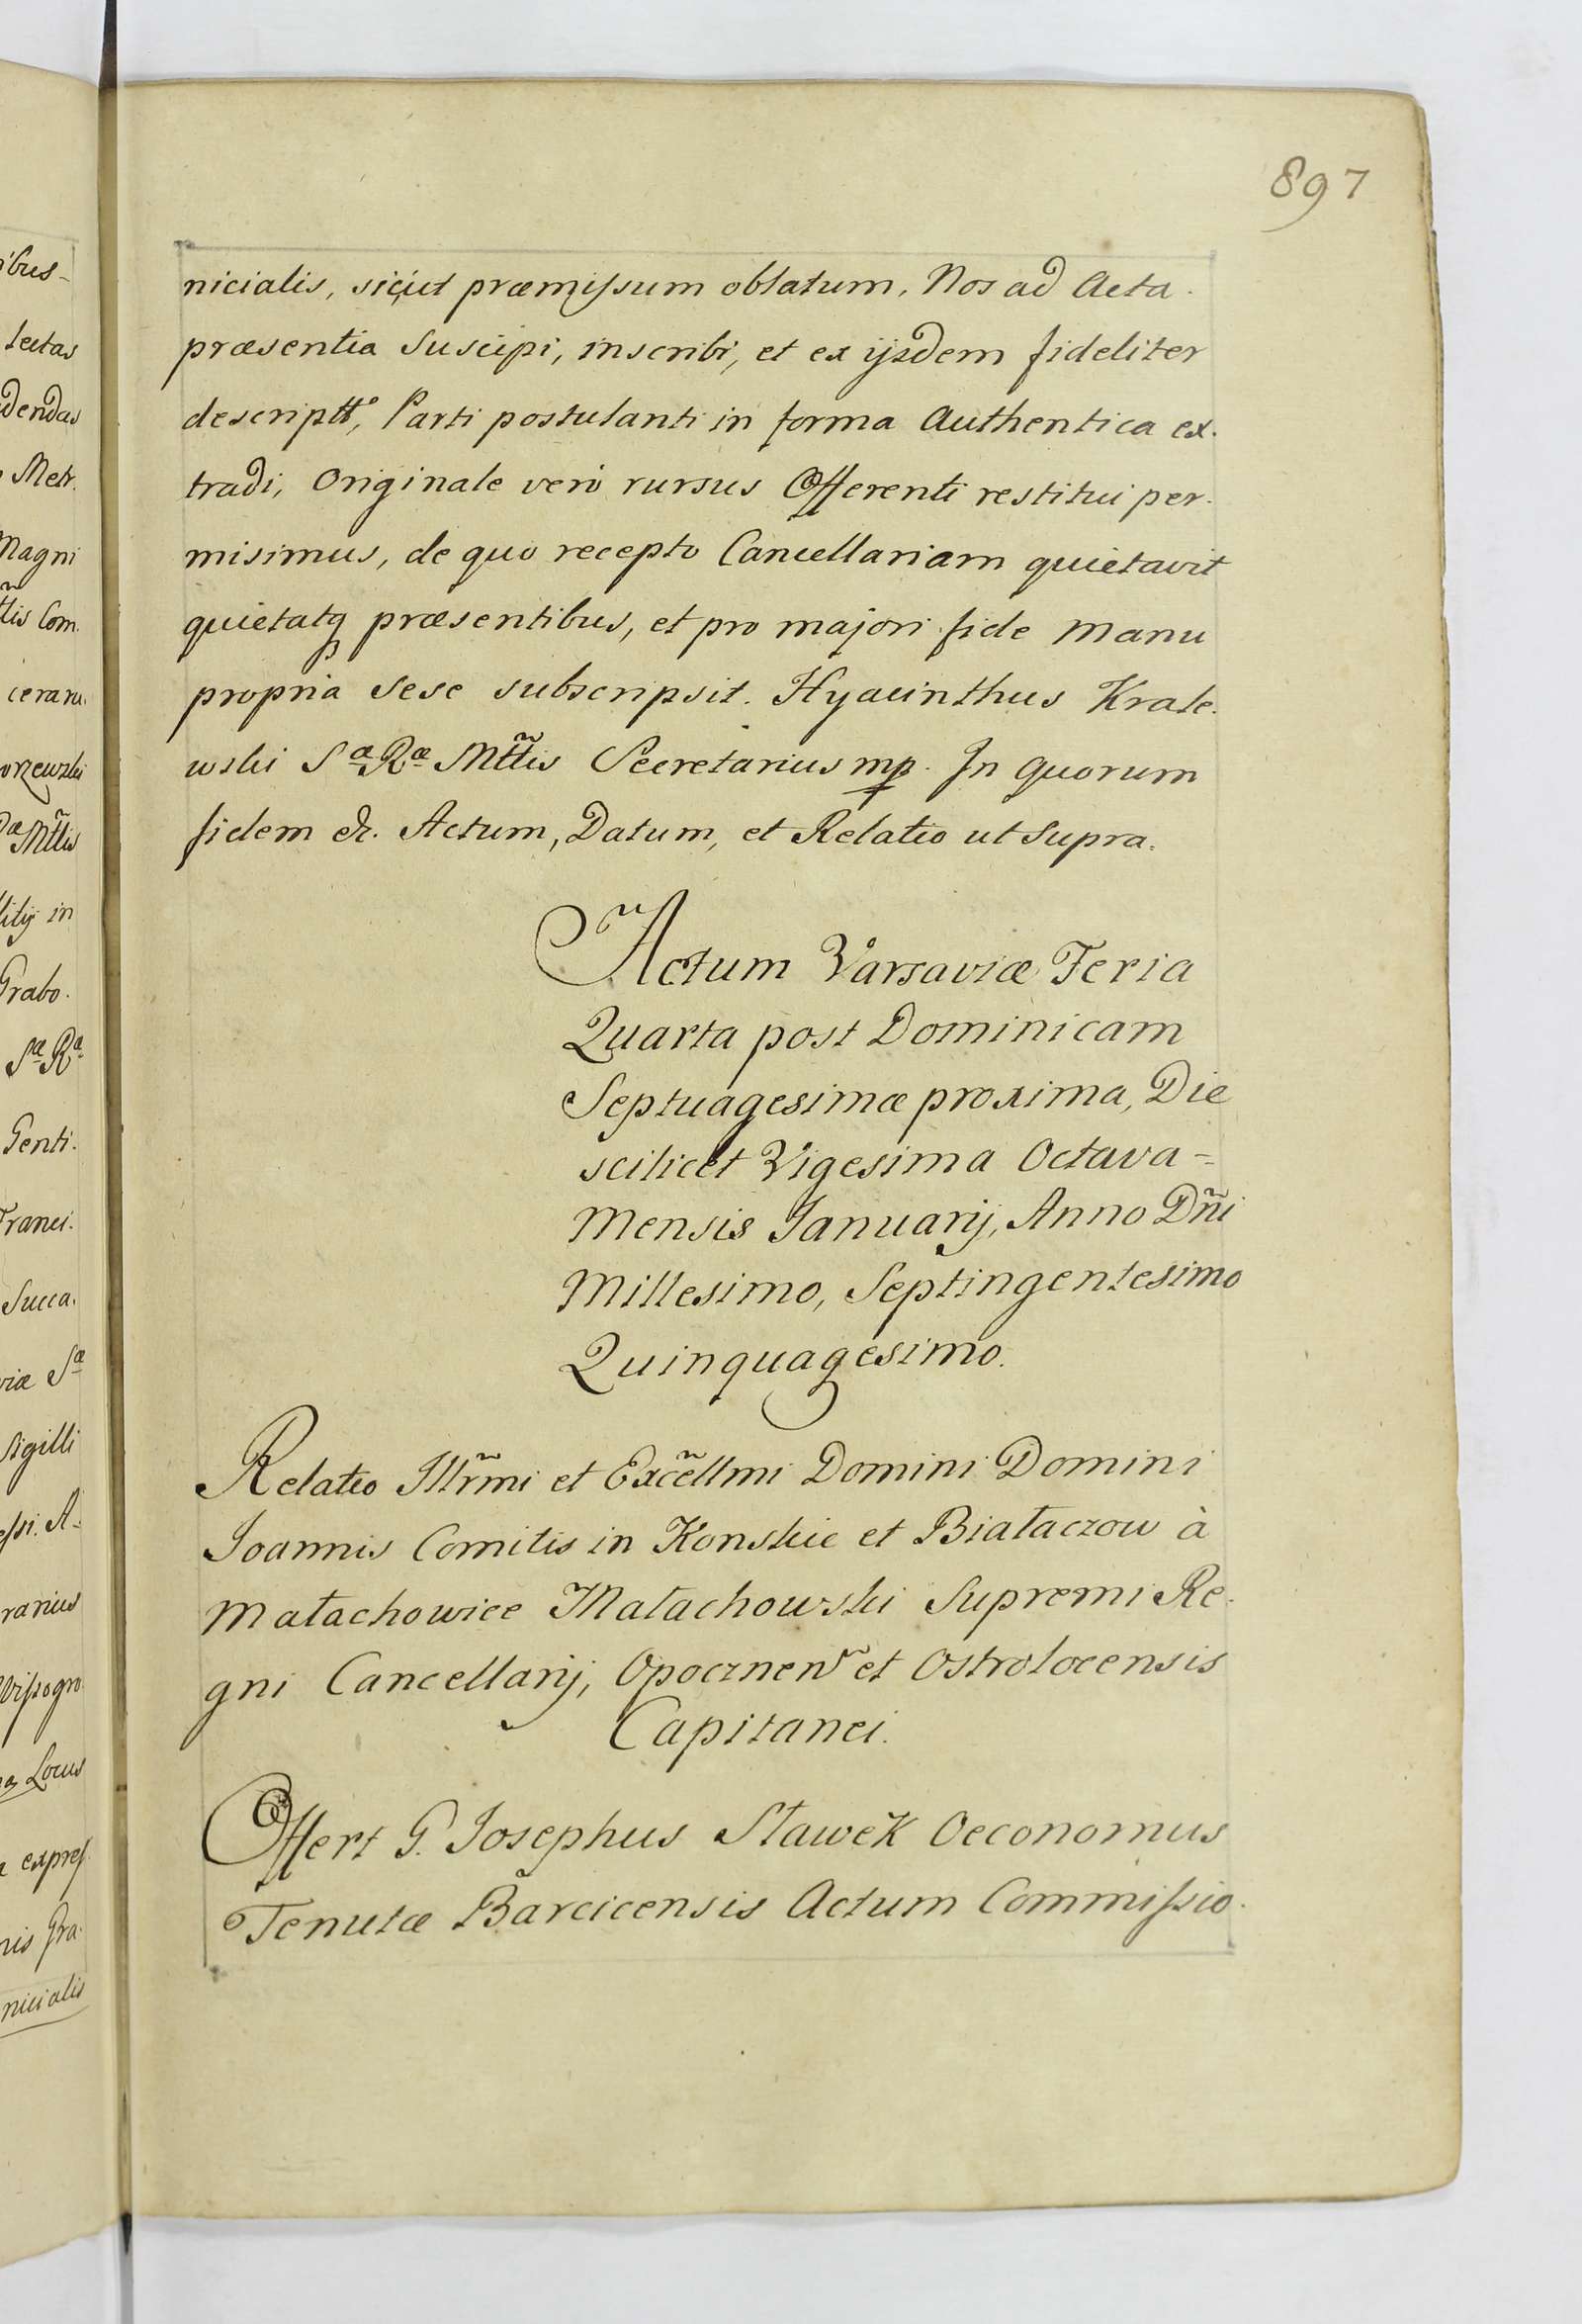 897
nicialis, sicut præmissum oblatum, Nos ad Acta
præsentia Suscipi, inscribi, et ex ijsdem fideliter
descriptt͠o, Parti postulanti in forma Authentica ex-
tradi, Originale verò rursus Offerenti restitui per-
misimus, de quo recepto Cancellariam quietavit
quietatq̃ præsentibus, et pro majori fide manu
propria sese subscripsit. Hyacinthus Krale-
wski Sæ Ræ Mtt͠is Secretarius mp. In quorum
fidem &. Actum, Datum, et Relatio ut Supra.
Actum Varsaviæ Feria
Quarta post Dominicam
Septuagesimæ proxima, Die
scilicet Vigesima Octava =
Mensis Januarij, Anno Dñi
Millesimo, Septingentesimo
Quinquagesimo.
Relatio Illr̃mi et Exc̃ellmi Domini Domini
Joannis Comitis in Konskie et Białaczow à
Małachowice Małachowski Supremi Re-
gni Cancellarij, Opocznen͠ et Ostrolocensis
Capitanei.
Offert G. Josephus Sławek Oeconomus
Tenutæ Barcicensis Actum Commissio-
ibus-
lectas
dendas
Metr.
Magni
tt͠is Com.
orzewski
Mtt͠is
in
Grabo-
Sæ Ræ
Genti-
Franci-
Succa-
viæ Sæ
Sigilli
essi. A-
rarius
Wissogro-
Locus
expres-
nis Gra-
nicialis